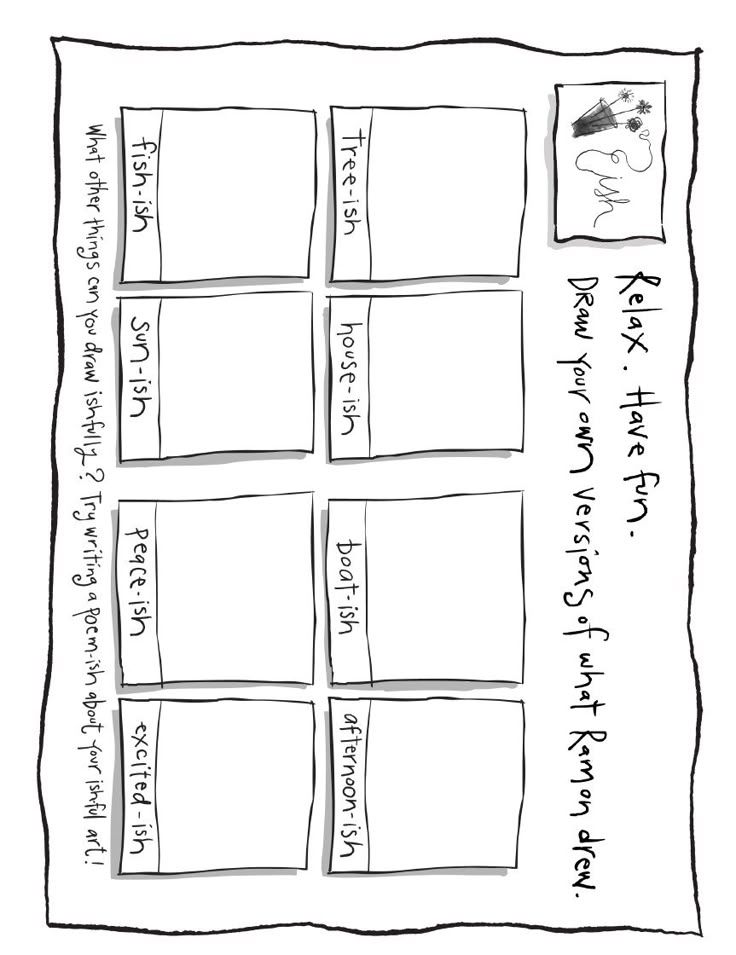 ish
Relax. Have fun.
Draw your own versions of what Ramon drew.
tree-ish
house-ish
boat-ish
afternoon-ish
fish-ish
sun-ish
peace-ish
excited-ish
What other things can you draw ishfully? Try writing a poem-ish about your ishful art!